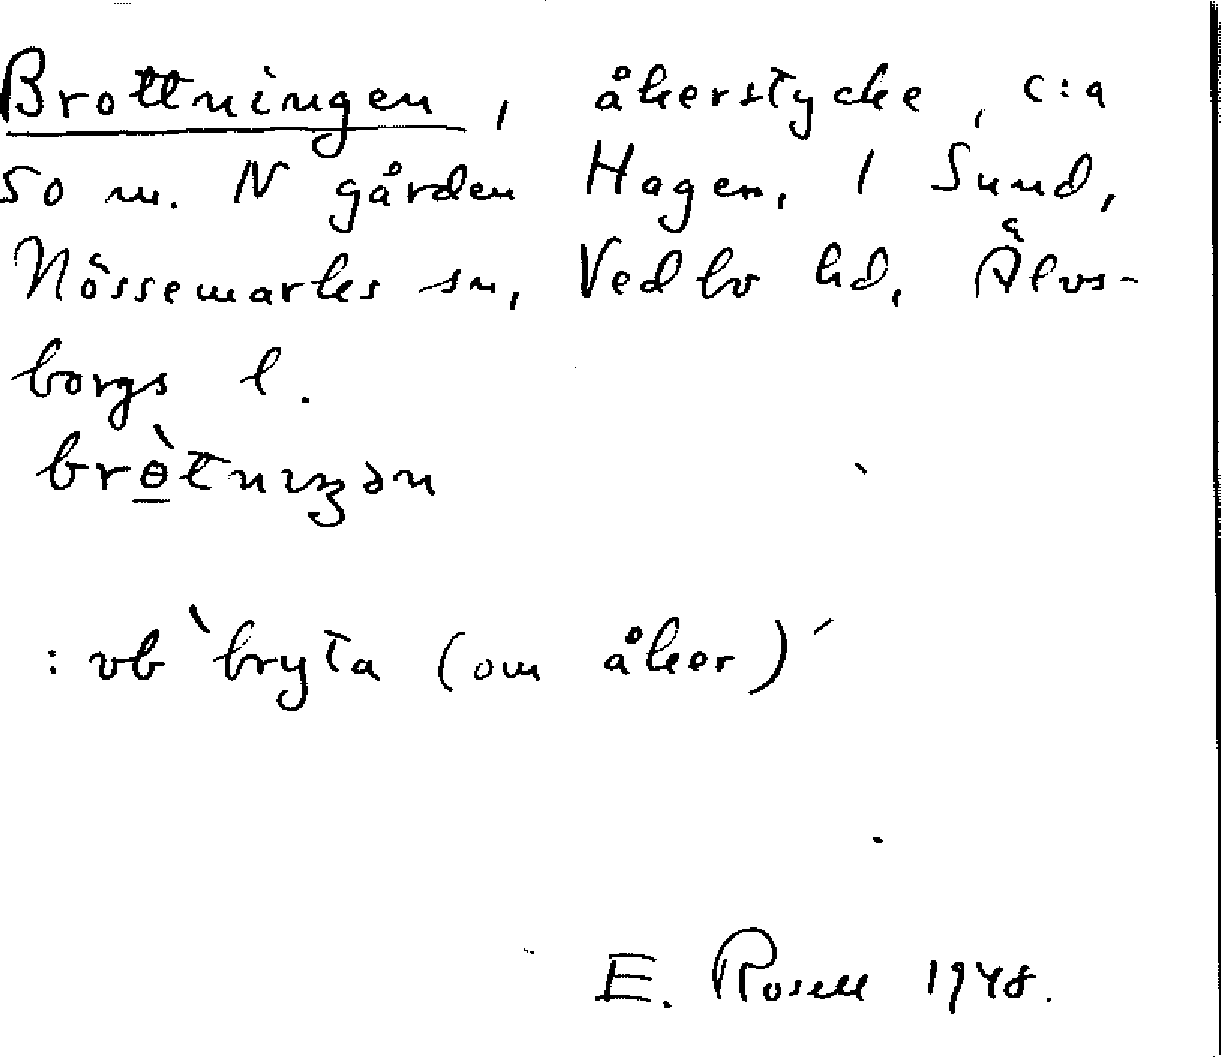 Brottningen, åkerstycke, c:a
50 m. N gården Hagen, 1 Sund,
Nössemarks sn, Vedbo hd, Älvs-
borgs l.
brө̀tnıŋən
: vb `bryta (om åker)´
E. Rosell 1948.